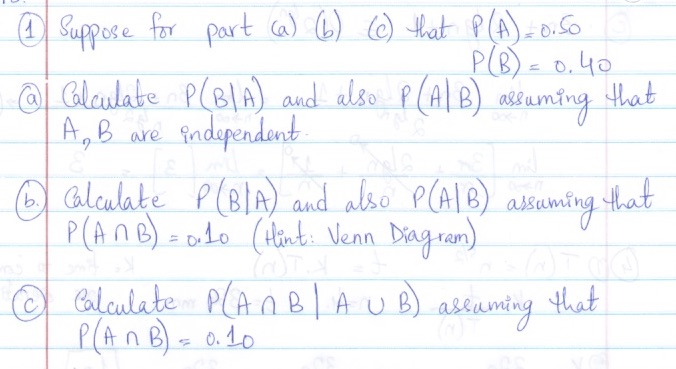 ① Suppose for part (a) (b) (c) that P(A) = 0.50
P(B) = 0.40
ⓐ Calculate P(B|A) and also P(A|B) assuming that
A, B are independent.
ⓑ. Calculate P(B|A) and also P(A|B) assuming that
P(A ∩ B) = 0.10 (Hint: Venn Diagram)
ⓒ Calculate P(A ∩ B | A ∪ B) assuming that
P(A ∩ B) = 0.10